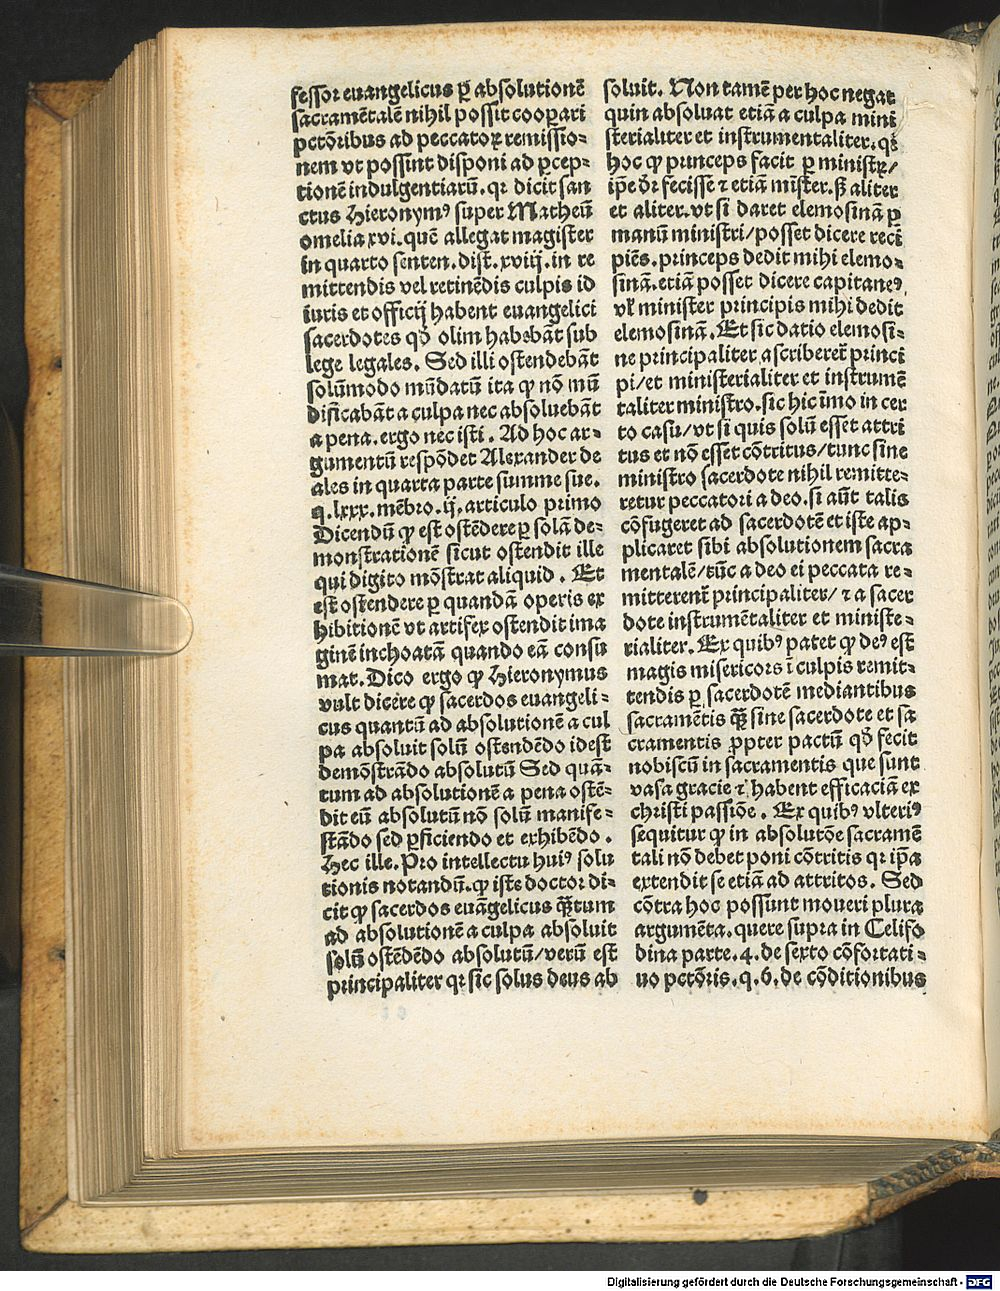 fessor euangelicus ꝑ absolutionē
sacramētalē nihil possit cooꝑari
pctōribus ad peccatoꝝ remissio⸗
nem vt possint disponi ad ꝑcep⸗
tionē indulgentiarū. qꝛ dicit san
ctus Hieronymꝰ super Matheū
omelia xvi. quē allegat magister
in quarto senten. dist. xviij. in re
mittendis vel retinēdis culpis id
iuris et officij habent euangelici
sacerdotes qđ olim habebāt sub
lege legales. Sed illi ostendebāt
solūmodo mūdatū ita ꝙ nō mū
dificabāt a culpa nec absoluebāt
a pena. ergo nec isti. Ad hoc ar⸗
gumentū respōdet Alexander de
ales in quarta parte summe sue.
q. lxxx. mēbro. ij. articulo primo
Dicendū ꝙ est ostēdere ꝑ solā de⸗
monstrationē sicut ostendit ille
qui digito mōstrat aliquid. Et
est ostendere ꝑ quandā operis ex
hibitionē vt artifex ostendit ima
ginē inchoatā quando eā consu
mat. Dico ergo ꝙ Hieronymus
vult dicere ꝙ sacerdos euangeli⸗
cus quantū ad absolutionē a cul
pa absoluit solū ostendēdo idest
demōstrādo absolutū Sed quā⸗
tum ad absolutionē a pena ostē⸗
dit eū absolutū nō solū manife⸗
stādo sed ꝑficiendo et exhibēdo.
Hec ille. Pro intellectu huiꝰ solu
tionis notandū. ꝙ iste doctor di⸗
cit ꝙ sacerdos euāgelicus q̄tum
ad absolutionē a culpa absoluit
solū ostēdēdo absolutū/verū est
principaliter qꝛ sic solus deus ab
soluit. Non tamē per hoc negat
quin absoluat etiā a culpa mini
sterialiter et instrumentaliter. qꝛ
hoc ꝙ princeps facit ꝑ ministꝝ/
ip̄e dꝛ fecisse ⁊ etiā mīster. ß aliter
et aliter. vt si daret elemosinā ꝑ
manū ministri/posset dicere reci
piēs. princeps dedit mihi elemo⸗
sinā. etiā posset dicere capitaneꝰ
vl̕ minister principis mihi dedit
elemosinā. Et sic datio elemosi⸗
ne principaliter ascriberet̄ princi
pi/et ministerialiter et instrumē
taliter ministro. sic hic īmo in cer
to casu/vt si quis solū esset attri
tus et nō esset cōtritus/tunc sine
ministro sacerdote nihil remitte⸗
retur peccatori a deo. si aūt talis
cōfugeret ad sacerdotē et iste ap⸗
plicaret sibi absolutionem sacra
mentalē/tūc a deo ei peccata re⸗
mitterent̄ principaliter/⁊ a sacer
dote instrumētaliter et ministe⸗
rialiter. Ex quibꝰ patet ꝙ deꝰ est
magis misericors ī culpis remit⸗
tendis ꝑ sacerdotē mediantibus
sacramētis q̄ꝫ sine sacerdote et sa
cramentis ꝓpter pactū qđ fecit
nobiscū in sacramentis que sunt
vasa gracie ⁊ habent efficaciā ex
christi passiōe. Ex quibꝰ vlteriꝰ
sequitur ꝙ in absolutōe sacramē
tali nō debet poni cōtritis qꝛ ip̄a
extendit se etiā ad attritos. Sed
cōtra hoc possunt moueri plura
argumēta. quere supra in Celifo
dina parte. 4. de sexto cōfortati⸗
uo pctōris. q. 6. de cōditionibus
Digitalisierung gefördert durch die Deutsche Forschungsgemeinschaft - DFG